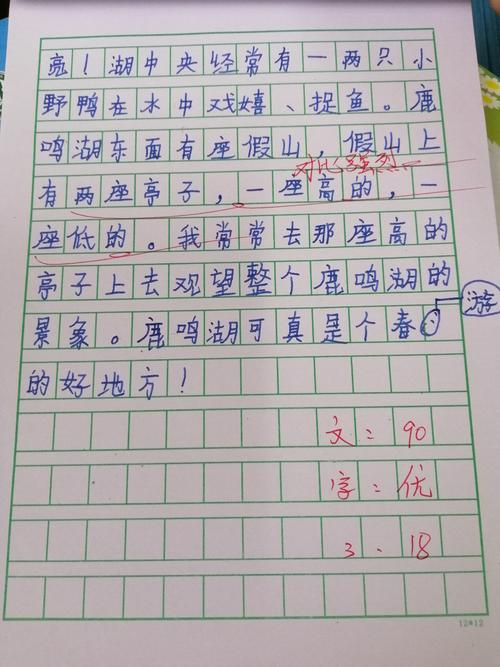 亮！湖中央经常有一两只小
野鸭在水中戏嬉、捉鱼。鹿
鸣湖东面有座假山，假山上
对比强烈
有两座亭子，一座高的，一
座低的。我常常去那座高的
亭子上去观望整个鹿鸣湖的
景象。鹿鸣湖可真是个春游
的好地方！
文：90
字：优
3.18
12*12